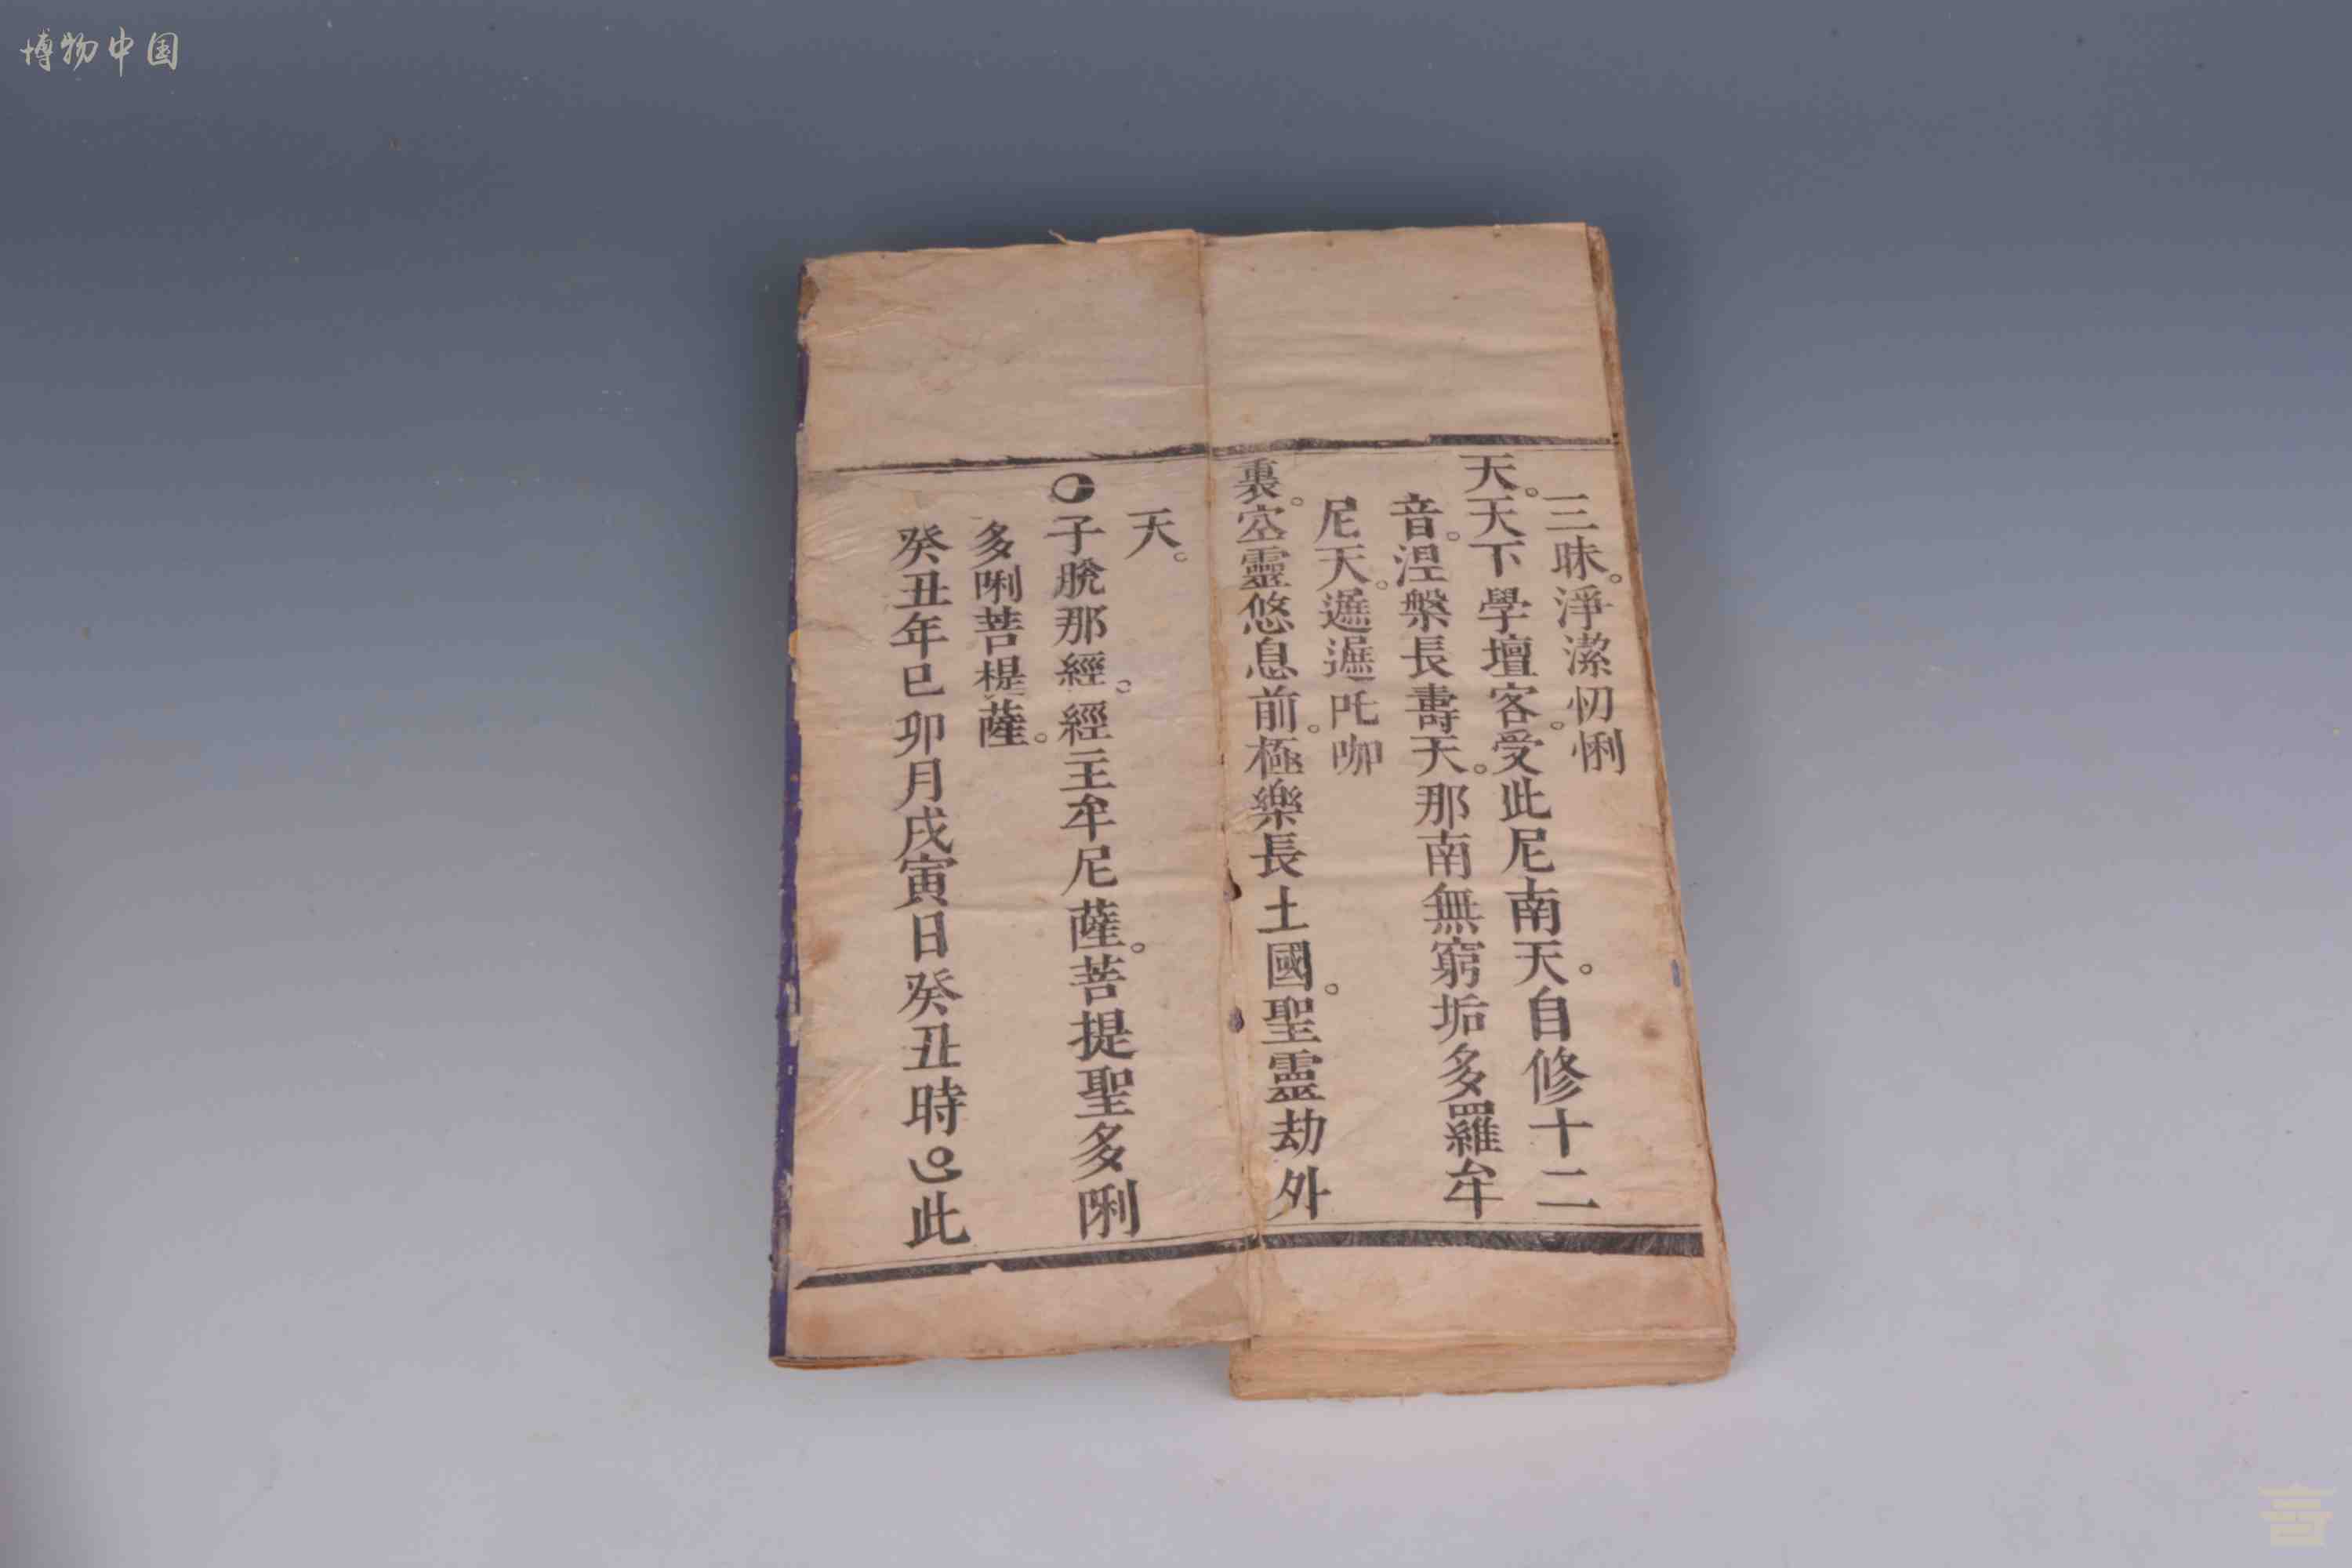 博物中国
三昧。淨潔忉悧
天。天下學壇客。受此尼南天。自修十二
音。涅槃長壽天。那南無窮垢多羅牟
尼天。遥遥吒𠵽
裏。空靈悠息前。極樂長土國。聖靈劫外
天。
子脫那經。經主牟尼薩。菩提聖多唎
多唎菩提薩。
癸丑年巳卯月戌寅日癸丑時此